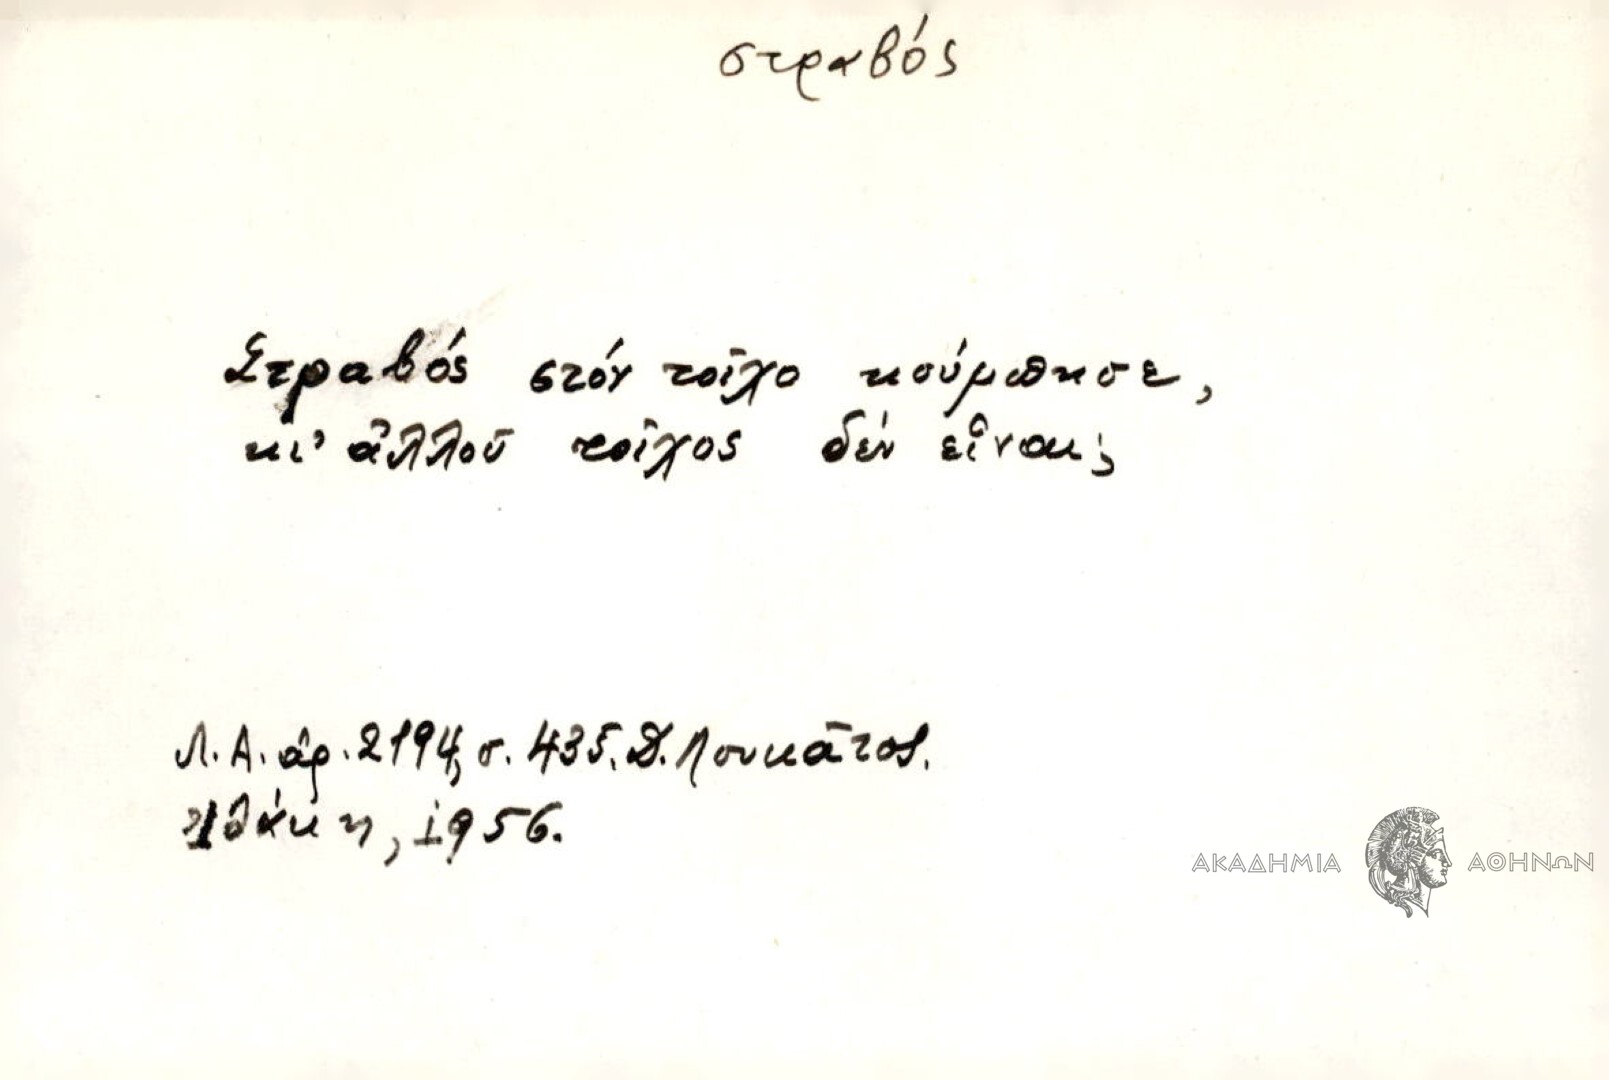 στραβός
Στραβός στόν τοῖχο κούμπησε,
κι' ἀλλοῦ τοῖχος δέν εἶναι;
Λ.Α. ἀρ. 2194, σ. 435. Δ. Λουκᾶτος.
Ἰθάκη, 1956.
ΑΚΑΔΗΜΙΑ ΑΘΗΝΩΝ